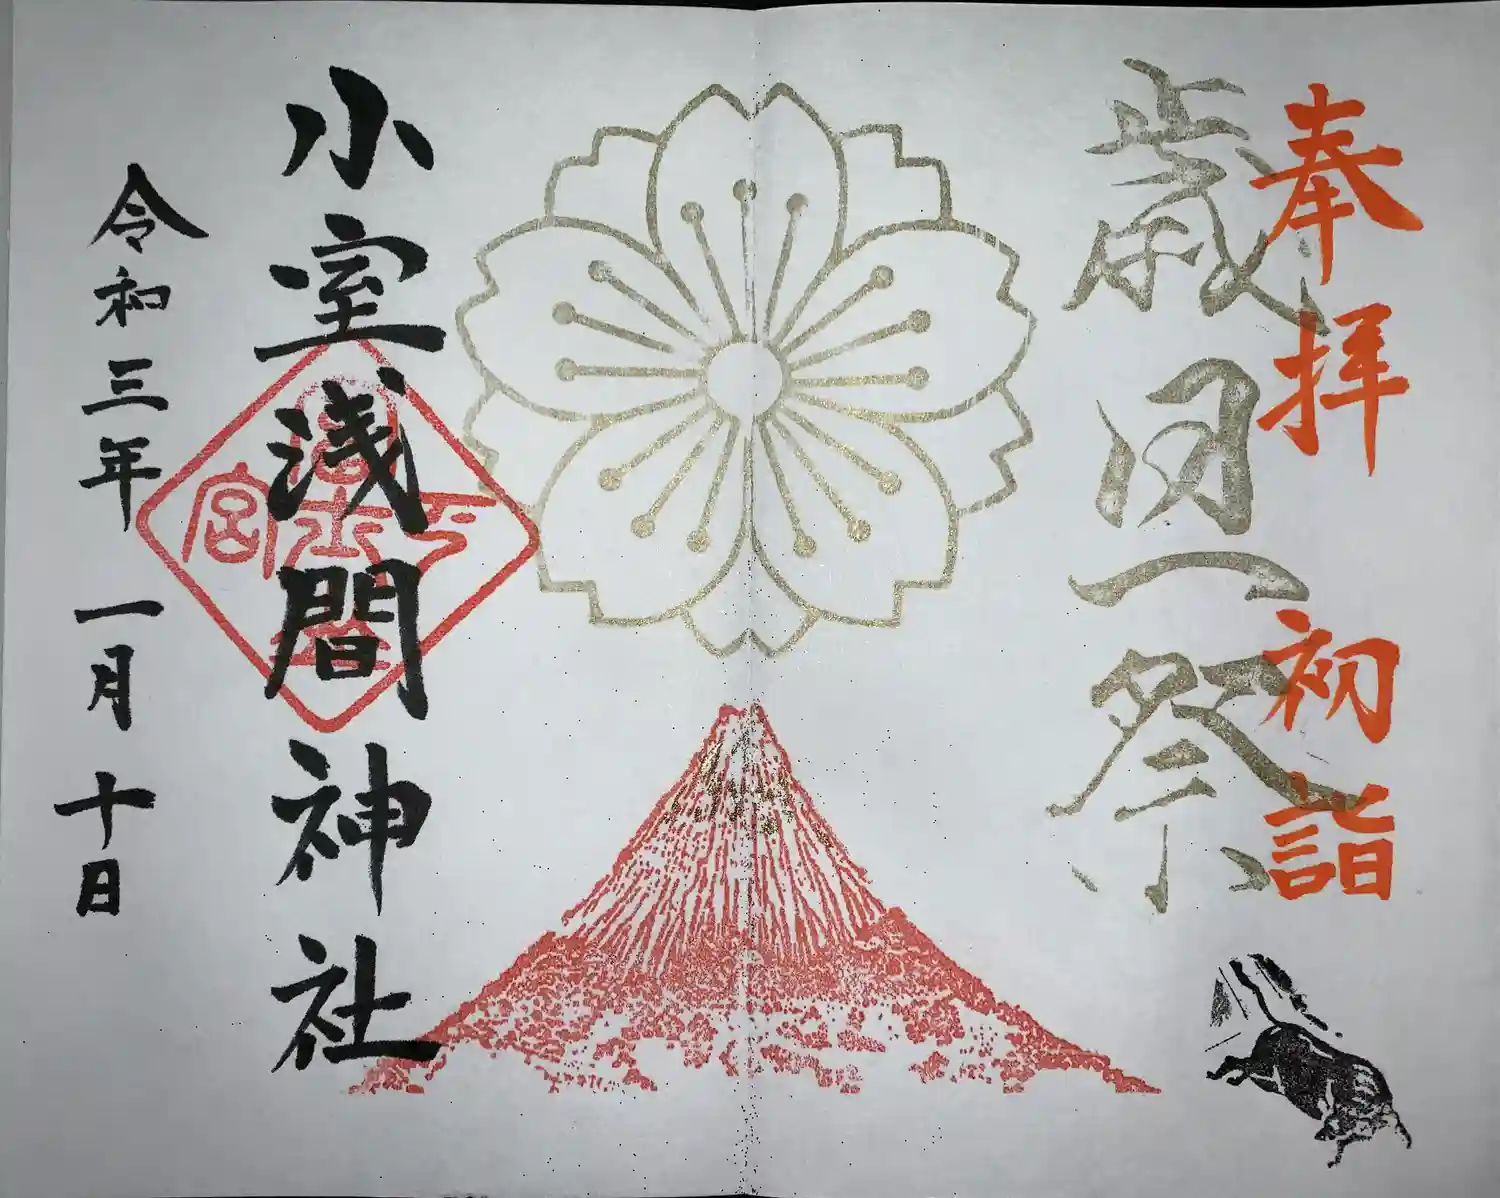 奉拝 初詣
歳旦祭
小室浅間神社
令和三年一月十日